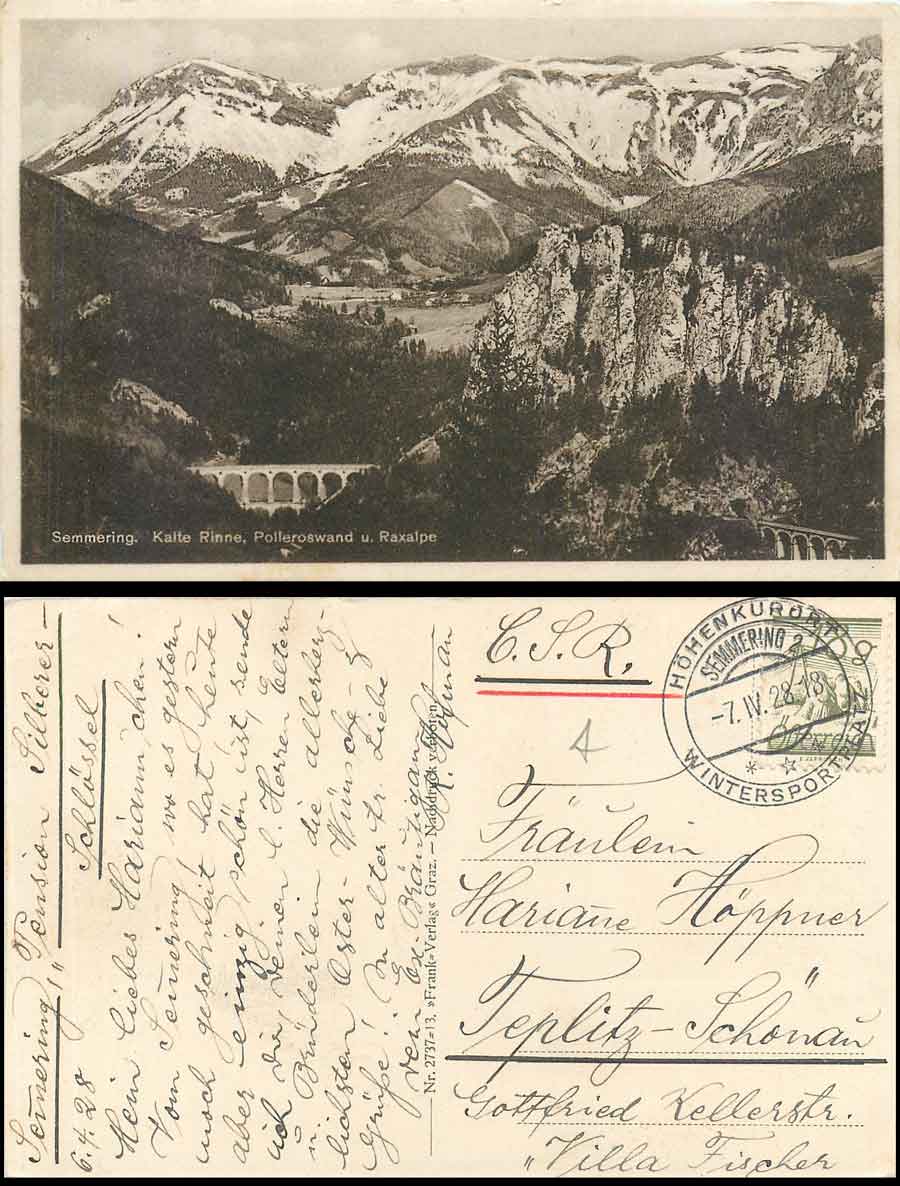 Semmering. Kalte Rinne, Polleroswand u. Raxalpe
Sem̄ering, Pension „Silberer-
Schlössel
6.4.28
Mein liebes Mariann'chen!
Vom Sem̄ering, wo es gestern
noch geschneit hat, heute
aber einzig schön ist, sende
ich dir, deinen l. Herren Eltern
u. Brüderlein die allerherz-
lichsten Oster-Wünsche &
Grüße! In alter tr. Liebe
dein Ex-Bräutigam
Nr. 2737-13, »Frank«-Verlag« Graz. – Nachdruck verboten
C.S.R.
HÖHENKURORT
SEMMERING 2
-7.IV.28-18
WINTERSPORTPLATZ
Fräulein
Marian̄e Höppner
Teplitz-Schönau
Gottfried Kellerstr.
„Villa Fischer